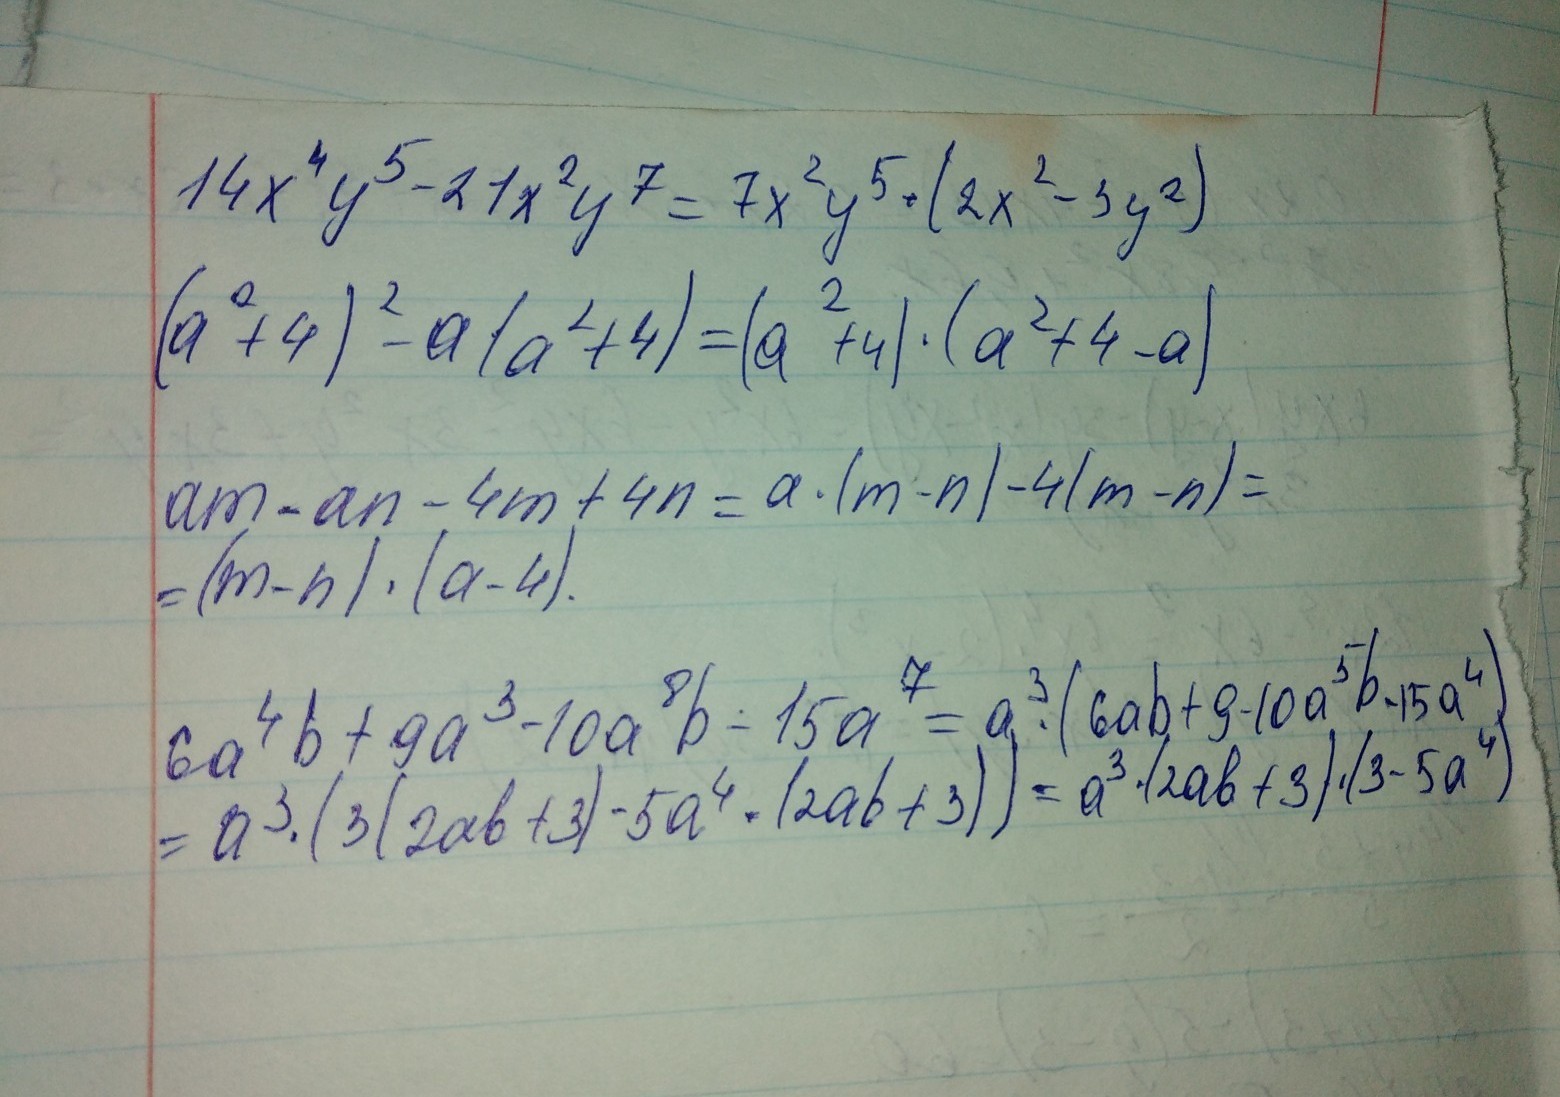 14x⁴y⁵-21x²y⁷=7x²y⁵·(2x²-3y²)
(a²+4)²-a(a²+4)=(a²+4)·(a²+4-a)
am-an-4m+4n=a·(m-n)-4(m-n)=
=(m-n)·(a-4).
6a⁴b+9a³-10a⁸b-15a⁷=a³·(6ab+9-10a⁵b-15a⁴)
=a³·(3(2ab+3)-5a⁴·(2ab+3))=a³·(2ab+3)·(3-5a⁴)